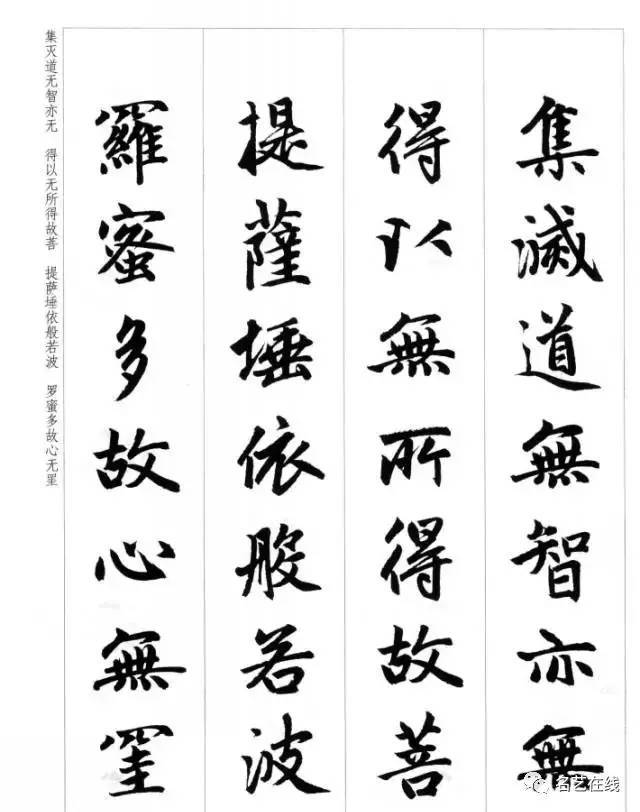 集滅道無智亦無
得以無所得故菩
提薩埵依般若波
羅蜜多故心無罣
集灭道无智亦无 得以无所得故菩 提萨埵依般若波 罗蜜多故心无罣
名艺在线